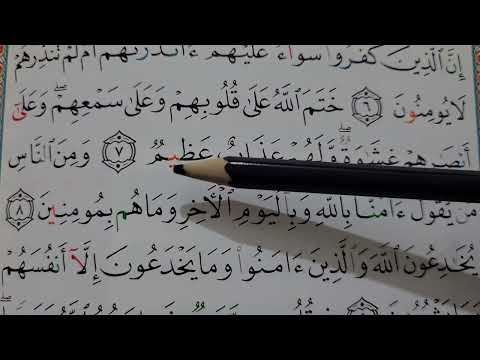 إِنَّ ٱلَّذِينَ كَفَرُوا۟ سَوَآءٌ عَلَيْهِمْ ءَاَنذَرْتَهُمْ أَمْ لَمْ تُنذِرْهُمْ
لَا يُومِنُونَ ٦ خَتَمَ ٱللَّهُ عَلَىٰ قُلُوبِهِمْ وَعَلَىٰ سَمْعِهِمْۖ وَعَلَىٰٓ
أَبْصَٰرِهِمْ غِشَٰوَةٌۖ وَلَهُمْ عَذَابٌ عَظِيمٌ ٧ وَمِنَ ٱلنَّاسِ
مَن يَقُولُ ءَامَنَّا بِٱللَّهِ وَبِٱلْيَوْمِ ٱلْأَخِرِ وَمَا هُم بِمُومِنِينَ ٨
يُخَٰدِعُونَ ٱللَّهَ وَٱلَّذِينَ ءَامَنُوا۟ وَمَا يُخَٰدِعُونَ إِلَّآ أَنفُسَهُمْ